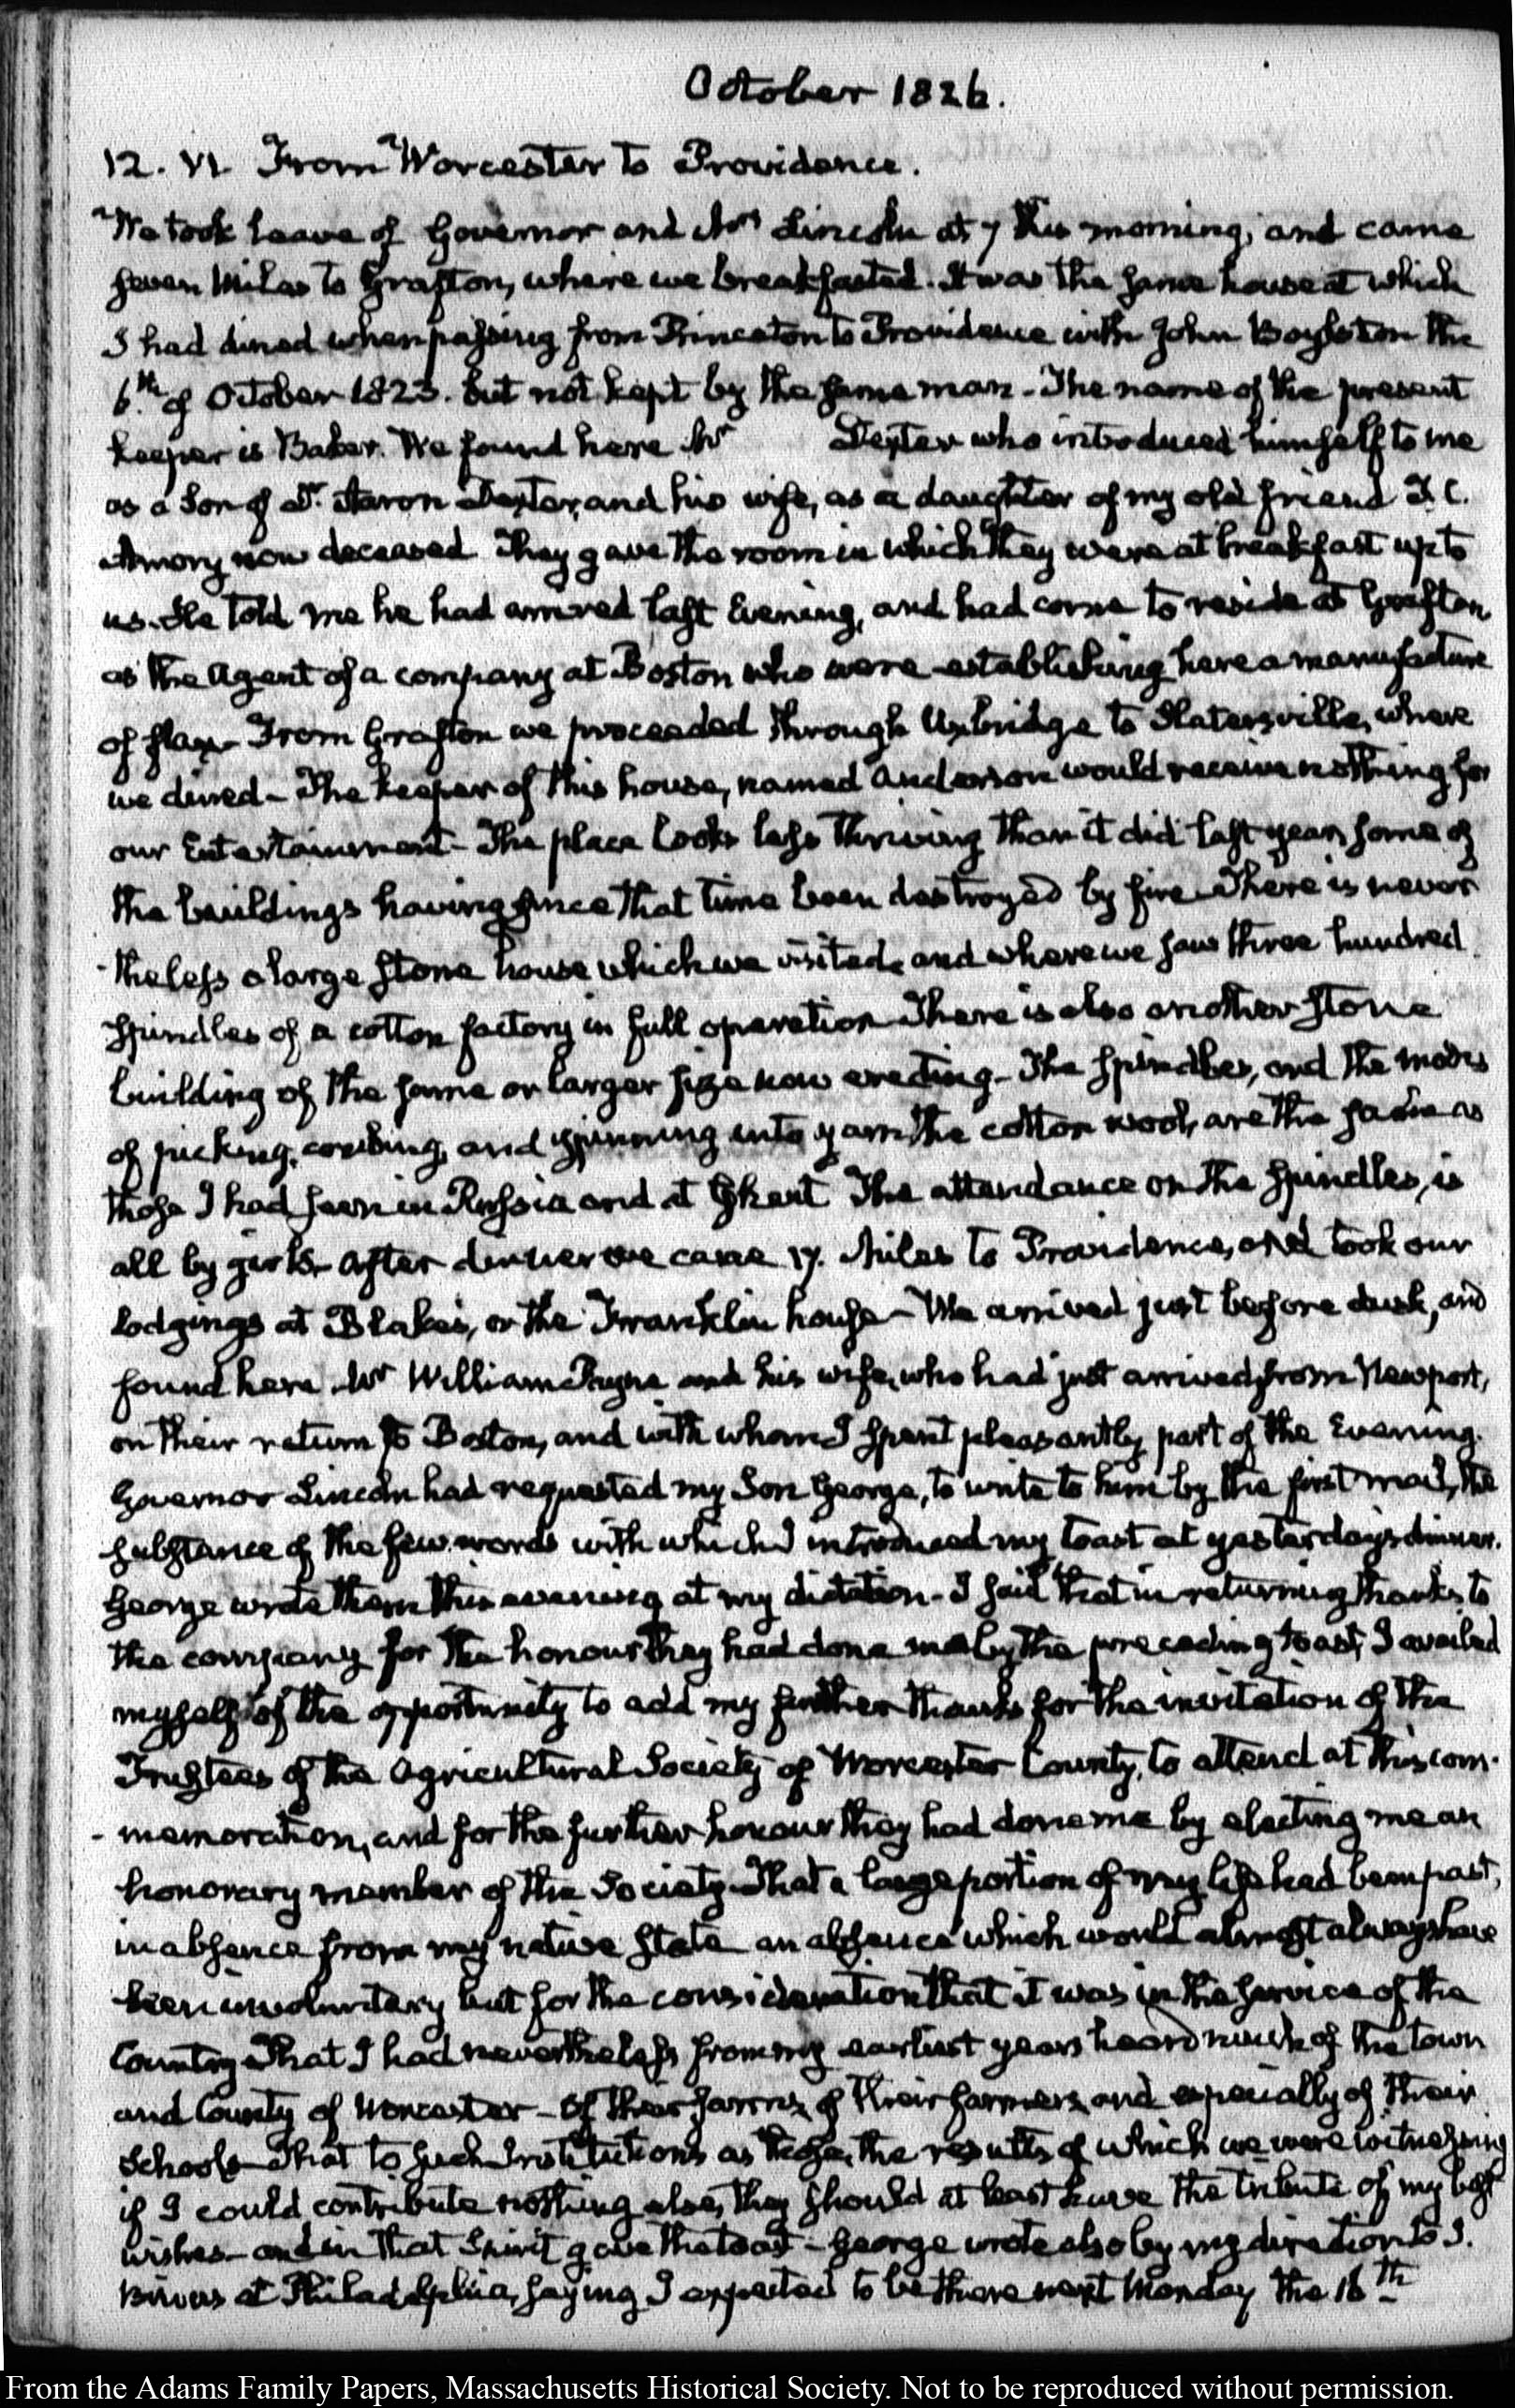 October 1826.
12. VI. From Worcester to Providence.
We took leave of Governor and Mrs Lincoln at 7 this morning, and came
seven Miles to Grafton, where we breakfasted. It was the same house at which
I had dined when passing from Princeton to Providence with John Boylston the
6th of October 1823. but not kept by the same man - The name of the present
keeper is Baker. We found here Mr Dexter who introduced himself to me
as a Son of Dr. Aaron Dexter, and his wife, as a daughter of my old friend
Amory now deceased They gave the room in which they were at breakfast up to
us. He told me he had arrived last Evening, and had come to reside at Grafton
as the Agent of a company at Boston who were establishing here a manufacture
of flax - From Grafton we proceeded through Uxbridge to Slatersville, where
we dined - The keeper of this house, named Anderson would receive nothing for
our Entertainment - The place looks less thriving than it did last year, some of
the buildings having since that time been destroyed by fire - There is never
-theless a large stone house which we visited, and where we saw three hundred
Spindles of a cotton factory in full operation There is also another stone
building of the same or larger size now erecting - The Spindles, and the modes
of picking, combing, and spinning into yarn the cotton wool, are the same as
those I had seen in Russia and at Ghent The attendance on the Spindles, is
all by girls - After dinner we came 17. Miles to Providence, and took our
lodgings at Blake's, or the Franklin house - We arrived just before dusk, and
found here Mr William Payne and his wife, who had just arrived from Newport,
on their return to Boston, and with whom I spent pleasantly part of the Evening.
Governor Lincoln had requested my Son George, to write to him by the first mail, the
substance of the few words with which I introduced my toast at yesterday's dinner.
George wrote them this evening at my dictation - I said that in returning thanks to
the company for the honour they had done me by the preceding toast, I availed
myself of the opportunity to add my further thanks for the invitation of the
Trustees of the Agricultural Society of Worcester County, to attend at this com-
-memoration, and for the further honour they had done me by electing me an
honorary member of the Society - That a large portion of my life had been past,
in absence from my native State an absence which would almost always have
been involuntary but for the consideration that it was in the service of the
Country - That I had nevertheless from my earliest years heard much of the town
and County of Worcester - of their farms, of their farmers, and especially of their
Schools - That to such Institutions as these, the results of which we were witnessing
if I could contribute nothing else, they should at least have the tribute of my best
wishes - and in that Spirit gave the toast - George wrote also by my direction to J.
at Philadelphia, saying I expected to be there next Monday the 16th
From the Adams Family Papers, Massachusetts Historical Society. Not to be reproduced without permission.